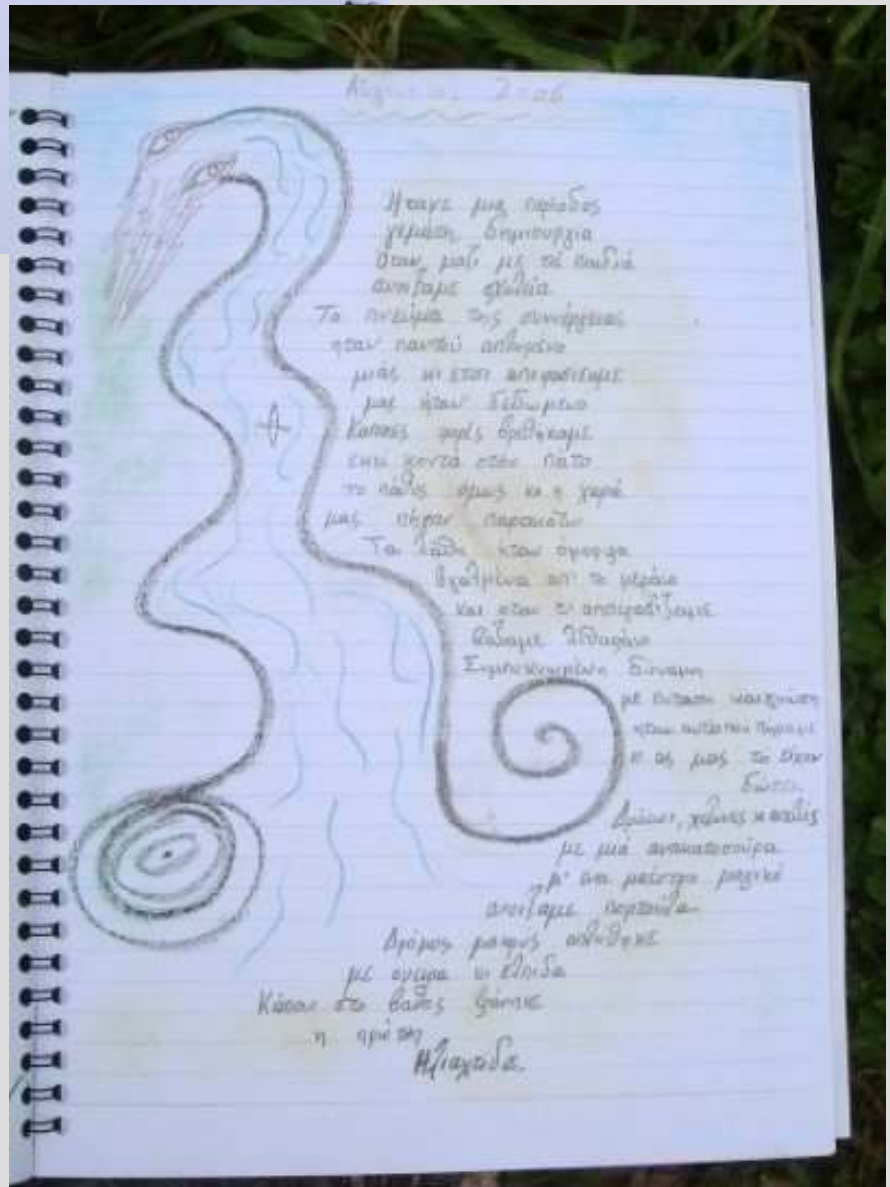 2006
Ήτανε μια περίοδος
γεμάτη δημιουργία
όταν μαζί με τα παιδιά
ανοίξαμε σχολεία
Το πνεύμα της συνέργειας
ήταν παντού απλωμένο
μιας κι έτσι αποφασίσαμε
μας ήταν δεδομένο
Κάποιες φορές βρεθήκαμε
εκεί κοντά στον πάτο
το πάθος όμως κι η χαρά
μας πήραν παρακάτω
Τα λάθη ήταν όμορφα
βγαλμένα απ' το μεράκι
και όταν τ' αποφασίζαμε
βάζαμε
Συμπυκνωμένη δύναμη
με ένταση και γνώση
ήταν αυτό που πήραμε
κι ας μας το είχαν
δώσει.
με μια ανακατωσούρα
μ' ένα μαγικό
ανοίξαμε
Δρόμος μακρύς απλώθηκε
με όνειρα κι ελπίδα
Κάπου στο βάθος
η πρώτη
Ηλιαχτίδα.